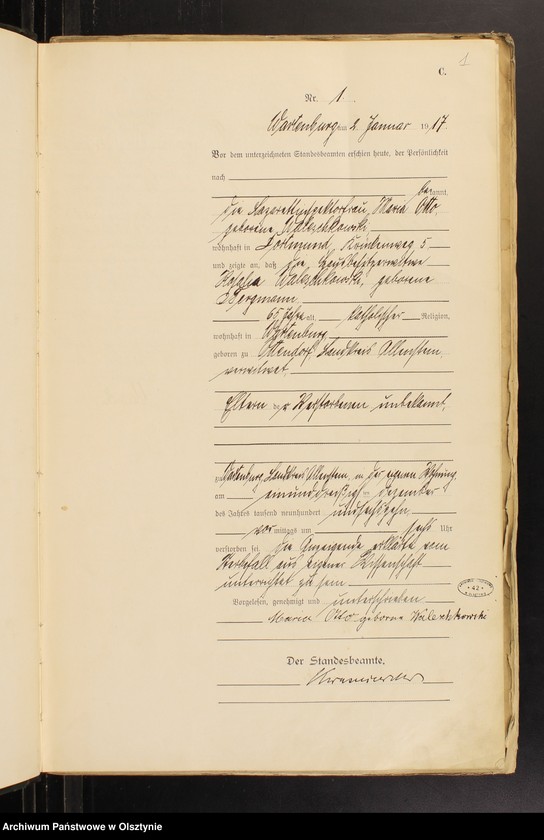 1
C.
Nr. 1.
Wartenburg am 2. Januar 1917
Vor dem unterzeichneten Standesbeamten erschien heute, der Persönlichkeit
nach
bekannt,
die Lazarettinspektorfrau Maria Otto,
geborene
wohnhaft in Dortmund, 5
und zeigte an, daß die
geborene
Bergmann
65 Jahre alt, katholischer Religion,
wohnhaft in Wartenburg
geboren zu Ottendorf, Landkreis Allenstein,
verwitwet,
Eltern der Verstorbenen unbekannt,
zu Wartenburg, Landkreis Allenstein, in der eigenen Wohnung
am einunddreißigsten Dezember
des Jahres tausend neunhundert undsechszehn
vor mittags um sechs Uhr
verstorben sei. Die Anzeigende erklärte vom
Sterbefall aus eigener Wissenschaft
unterrichtet zu sein
Vorgelesen, genehmigt und unterschrieben
Maria Otto geborne
Der Standesbeamte.
42
Archiwum Państwowe w Olsztynie